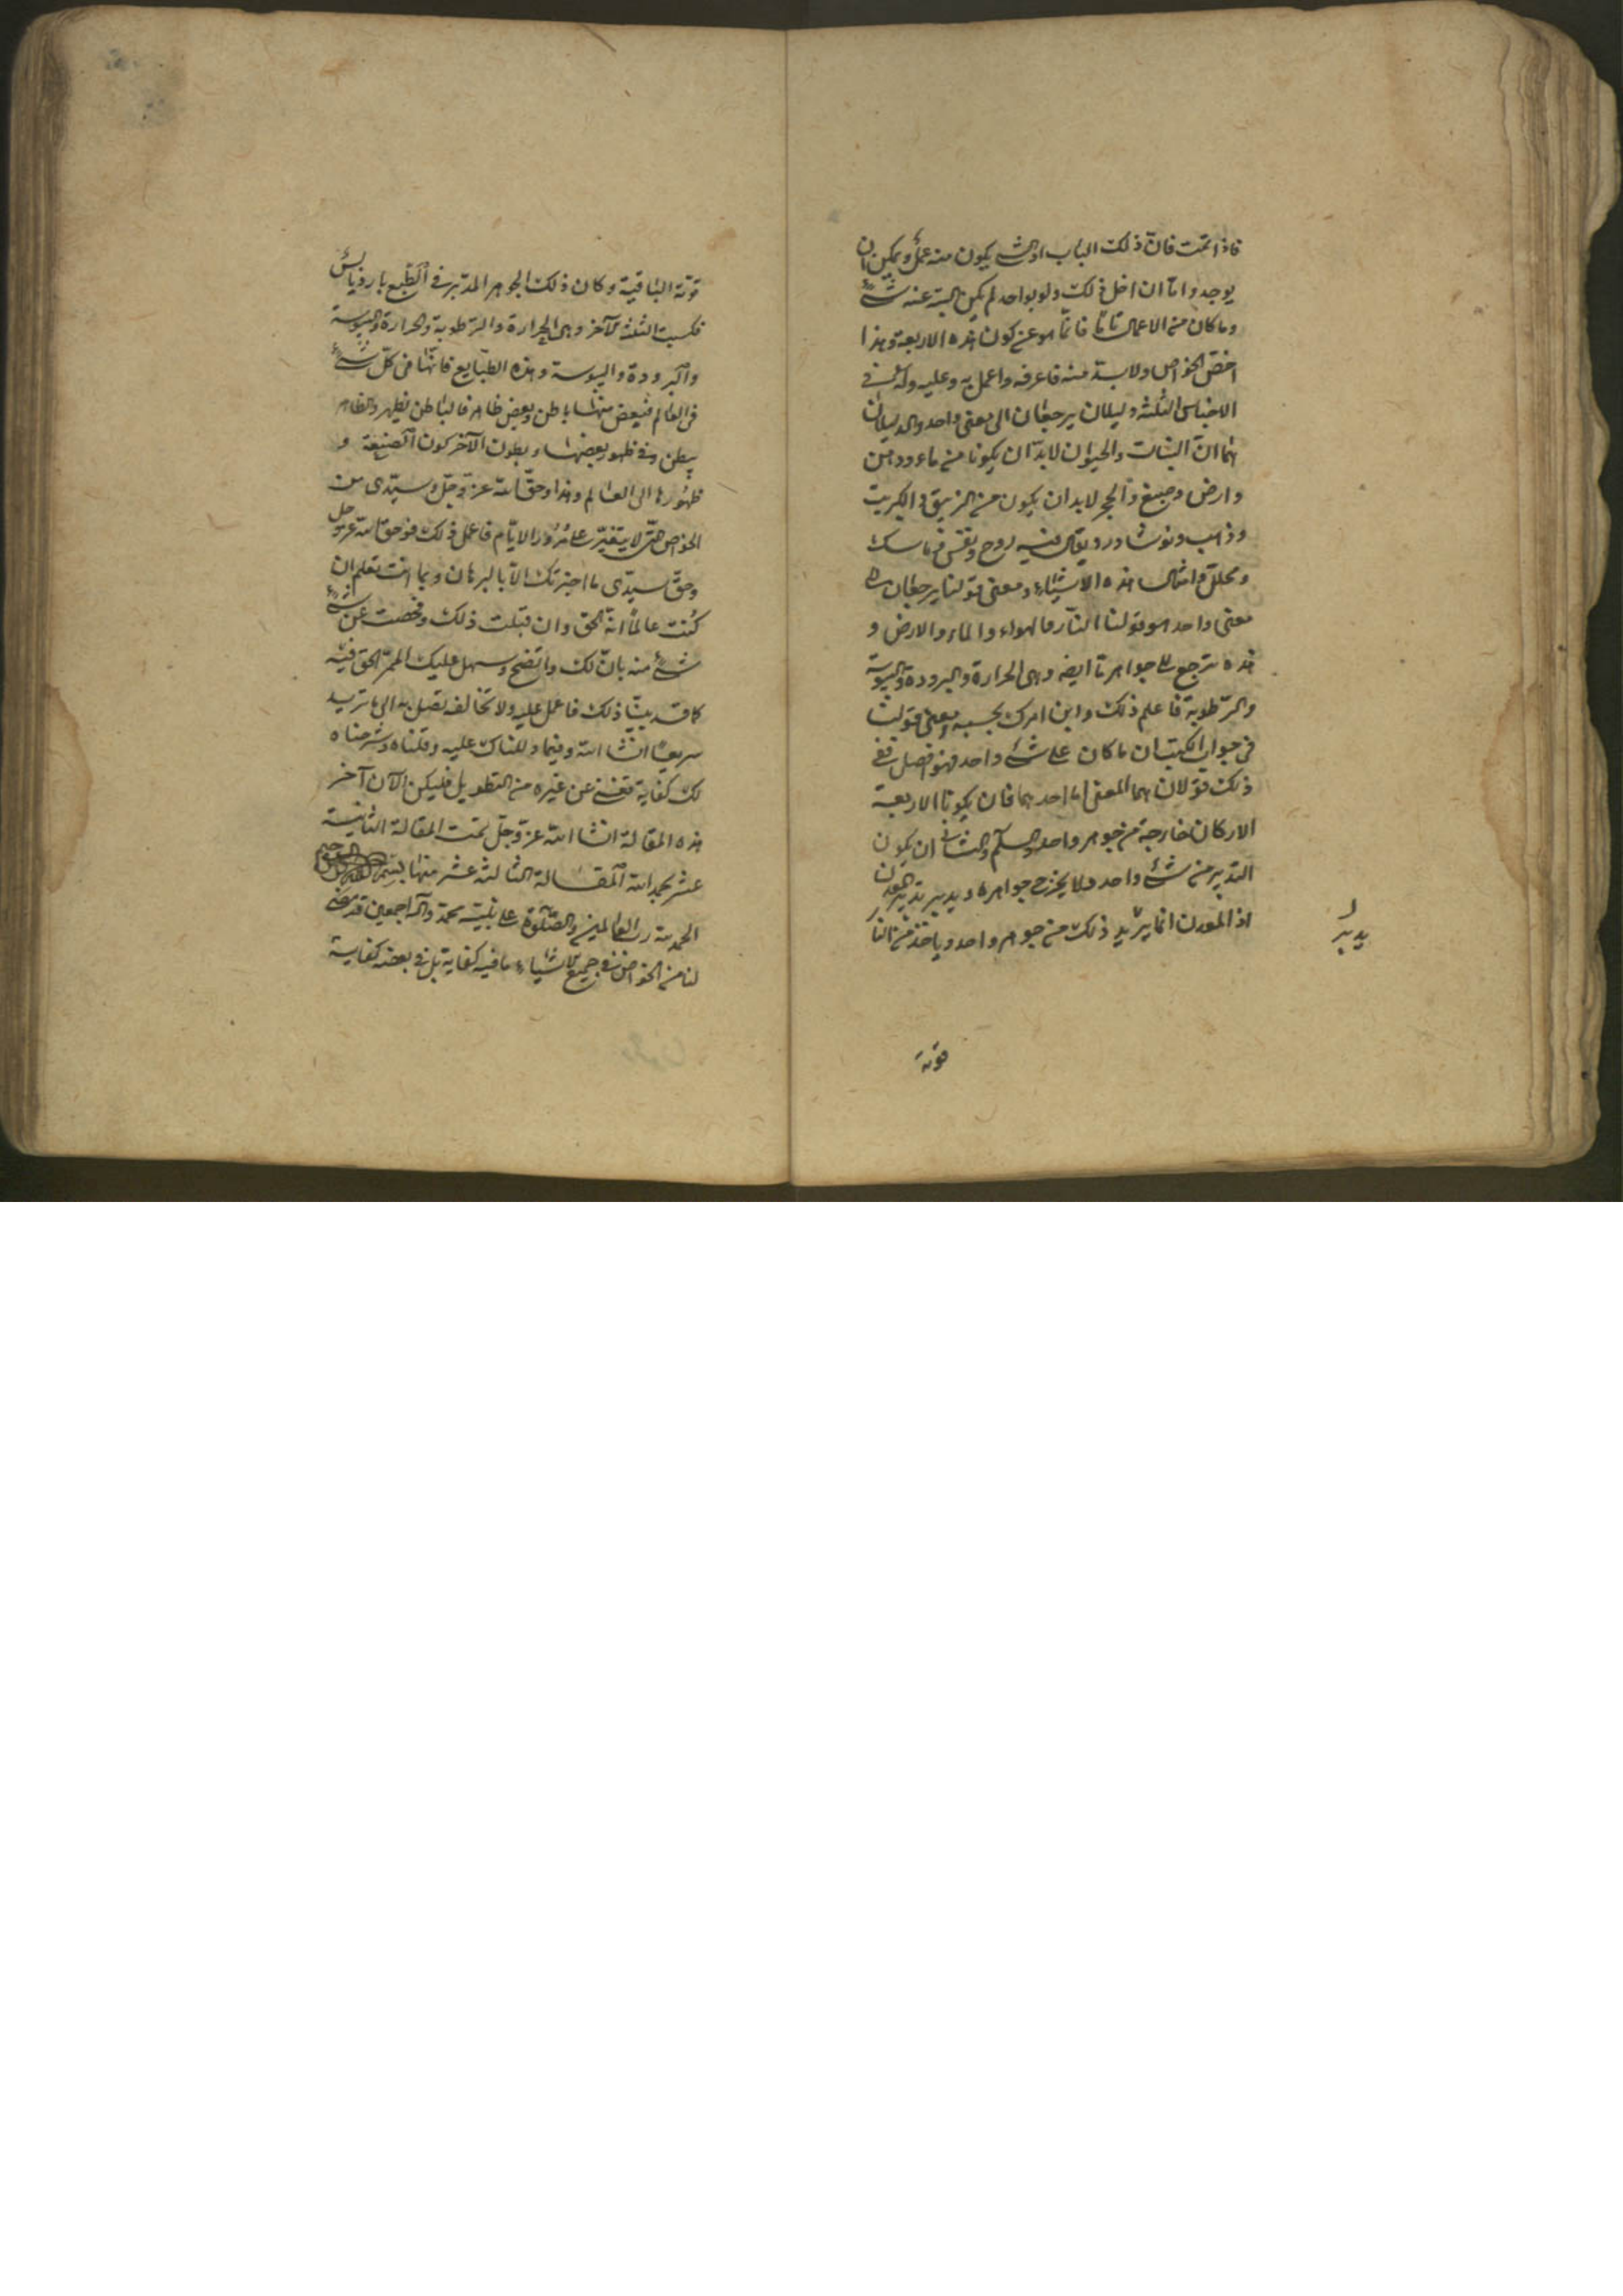 فاذا تمت فان ذلك الباب او الشئ يكون منه عمل ويمكن ان
يوجد واما ان اخل ذلك ولو بواحد لم يكن البتة عنه شئ
وما كان من الاعمال تاما فانما هو عن كون هذه الاربعة وهذا
اخص الخواص ولا بد منه فاعرفه واعمل به وعليه وله في
الاجناس الثلثة دليلان يرجعان الى معنى واحد والدليلان
هما ان النبات والحيوان لابد ان يكونا من ماء ودهن
وارض وصبغ والحجر لابد ان يكون من الزيبق والكبريت
وذهب ونوشادر ويقال فيه روح ونفس وماسك
ومحلل وامثال هذه الاشياء ومعنى قولنا يرجعان الى
معنى واحد هو قولنا النار والهواء والماء والارض و
هذه ترجع الى جواهرنا ايضه وهى الحرارة والبرودة واليبوسة
والرطوبة فاعلم ذلك وابن امرك بحسبه ومعنى قولنا
فى جواب الكتب ان ما كان على شئ واحد فهو افضل ففى
ذلك قولان هما المعنى اما احدهما فان يكونا الاربعة
الاركان خارجة من جوهر واحد والسلم والثانى ان يكون
التدبير من شئ واحد ولا يخرج جواهره ويدبر تدبير المعدن
اذ المعدن انما يربد ذلك من جوهر واحد وياخذ من النار
يدبر
قوته
قوته الباقية وكان ذلك الجوهر المدبر فى الطبع باردا يابس
فكسبت الثلث الآخر وهى الحرارة والرطوبة والحرارة واليبوسة
والبرودة واليبوسة وهذه الطبايع فانها فى كل شئ
فى العالم فبعض منها باطن وبعض ظاهر فالباطن يظهر والظاهر
يبطن وفى ظهور بعضها وبطون الآخر كون الصنعة و
ظهورها الى العالم وهذا وحق الله عز وجل وسيدى من
الخواص حتى لا يتغير على مرور الايام فاعمل ذلك فوحق الله عز وجل
وحق سيدى ما اخبرتك الا بالبرهان وبما انت تعلم ان
كنت عالما انه الحق وان قبلت ذلك وفحصت عن شئ
شئ منه بان لك واتضح وسهل عليك الممر الحق فيه
كما قد بينا ذلك فاعمل عليه ولا تخالفه تصل به الى ما تريد
سريعا انشا الله وفيما دللناك عليه وقلناه وشرحناه
لك كفاية تغنى عن غيره من التطويل فليكن الآن آخر
هذه المقالة انشا الله عز وجل تمت المقالة الثانية
عشر بحمد الله المقالة الثالثة عشر منها بسم الله الرحمن الرحيم
الحمد لله رب العالمين والصلوة على نبيه محمد وآله اجمعين قد مضى
لنا من الخواص فى جميع الاشياء ما فيه كفاية بل فى بعضه كفاية